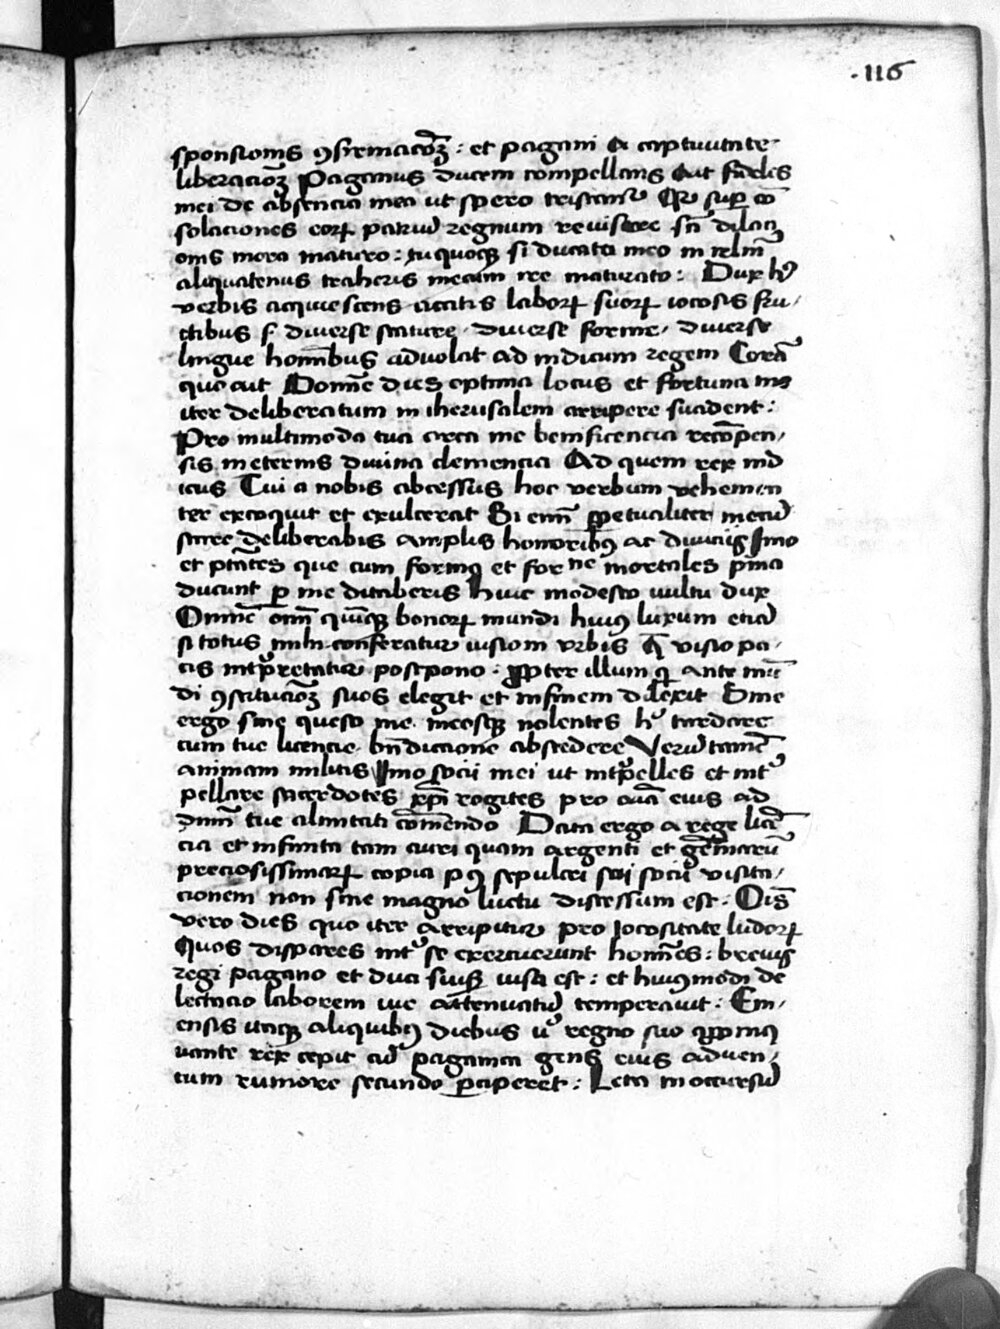 ·116
sponsionis ꝯfirmacōȝ : et pagani a captiuitate
liberacōȝ Paganus ducem compellans Aut fideles
mei de absencia mea ut spero tristant᷑ Qr̄ suꝑ cō
solaciones eorꝝ paruū regnum reuisere sn̄ dilaci
onis mora maturo : tu quoqꝫ si ducatu meo in ielrm̄
aliquatenus traheris mecum ire maturato : Dux hꝰ
verbis acquiescens acatis laborꝝ suorꝝ iocosis fru,
ctibus sꝫ diuerse stature , diuerse forme , diuerse
lingue homībus aduolat ad indicum regem Corā
quo ait Domīe dies optima locus et fortuna me
iter deliberatum in iherusalem arripere suadent :
Pro multimoda tua circa me beneficencia recōpen,
sis in eternis diuina clemencia Ad quem rex ind
icus Tui a nobis abcessus hoc verbum vehemen
ter excoquit et exulcerat Si enim̄ ꝑpetualiter mecū
stare deliberabis amplis honoribꝰ ac diuiciis Imo
et ptātes que cum formaꝫ et for ne mortales pīna
ducunt ꝑ me ditaberis Huic modesto uultu dux
Omnē om̄ quīqꝫ bonorꝝ mundi huiꝰ luxum etiā
si totus mihi conferatur uisiom urbis q̄ visio pa,
cis intꝑretatur postpono : ꝓpter illum qͥ ante mū
di ꝯstitucōȝ suos elegit et infinem dilexit Sine
ergo sine queso me , meosqꝫ nolentes hͥ tardare
cum tue licencie bn̄diccione abscedere Verūtamē
animam militis Imo socii mei ut intꝑelles et intꝰ
pellare sacerdotes xp̄i rogites pro aīa eius ad
dnm̄ tue almitati cōmendo Data ergo a rege licē
cia et infinita tam auri quam argenti et gēmarū
preciosissimarꝝ copia pꝰ sepulcri sc̄i socii visita,
cionem non sine magno luctu discessum est : Oīs
vero dies quo iter arripitur pro Jocositate ludorꝝ
Quos dispares intꝰ se exercuerunt homīes : breuis
regi pagano et duci suisqꝫ uisa est : et huiꝰmodi de
lectacio laborem uie attenuatū temperauit : Em,
ensis itaqꝫ aliquibꝰ diebus uͥ regno suo apꝓpinq
uante rex cepit ad pagania gens eius aduen,
tum rumore secundo ꝑciperet : Leta in occursū